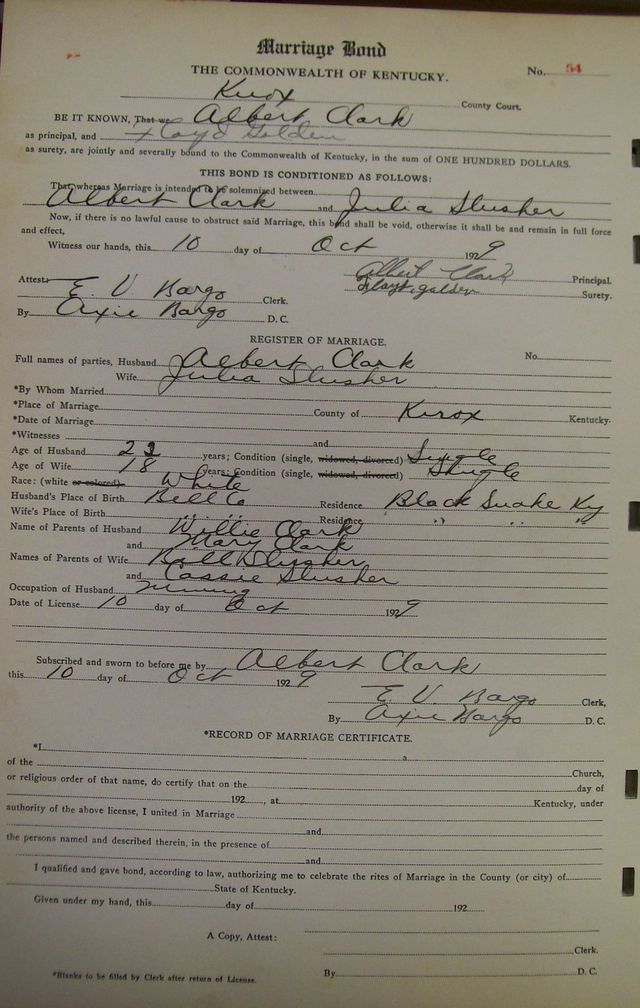 Marriage Bond
THE COMMONWEALTH OF KENTUCKY.
No. 54
Knox County Court.
BE IT KNOWN, That we Albert Clark
as principal, and Floyd Golden
as surety, are jointly and severally bound to the Commonwealth of Kentucky, in the sum of ONE HUNDRED DOLLARS.
THIS BOND IS CONDITIONED AS FOLLOWS:
That whereas Marriage is intended to be solemnized between
Albert Clark and Julia Slusher
Now, if there is no lawful cause to obstruct said Marriage, this bond shall be void, otherwise it shall be and remain in full force
and effect,
Witness our hands, this 10 day of Oct 1929
Albert Clark Principal.
Attest: E. V Bargo Clerk. Floyd Golden Surety.
By Axie Bargo D. C.
REGISTER OF MARRIAGE.
Full names of parties, Husband Albert Clark No.
Wife Julia Slusher
*By Whom Married
*Place of Marriage County of Knox Kentucky.
*Date of Marriage
*Witnesses and
Age of Husband 23 years; Condition (single, widowed, divorced) Single
Age of Wife 18 years; Condition (single, widowed, divorced) Single
Race: (white or colored) White
Husband's Place of Birth Bell Co Residence Black Snake Ky
Wife's Place of Birth " " Residence " " "
Name of Parents of Husband Willie Clark
and Mary Clark
Names of Parents of Wife Bill Slusher
and Cassie Slusher
Occupation of Husband Mining
Date of License 10 day of Oct 1929
Subscribed and sworn to before me by Albert Clark
this 10 day of Oct 1929
E. V. Bargo Clerk,
By Axie Bargo D. C.
*RECORD OF MARRIAGE CERTIFICATE.
*I a
of the Church,
or religious order of that name, do certify that on the day of
192 , at Kentucky, under
authority of the above license, I united in Marriage
and
the persons named and described therein, in the presence of
and
I qualified and gave bond, according to law, authorizing me to celebrate the rites of Marriage in the County (or city) of
State of Kentucky.
Given under my hand, this day of 192
A Copy, Attest:
Clerk.
*Blanks to be filled by Clerk after return of License. By D. C.